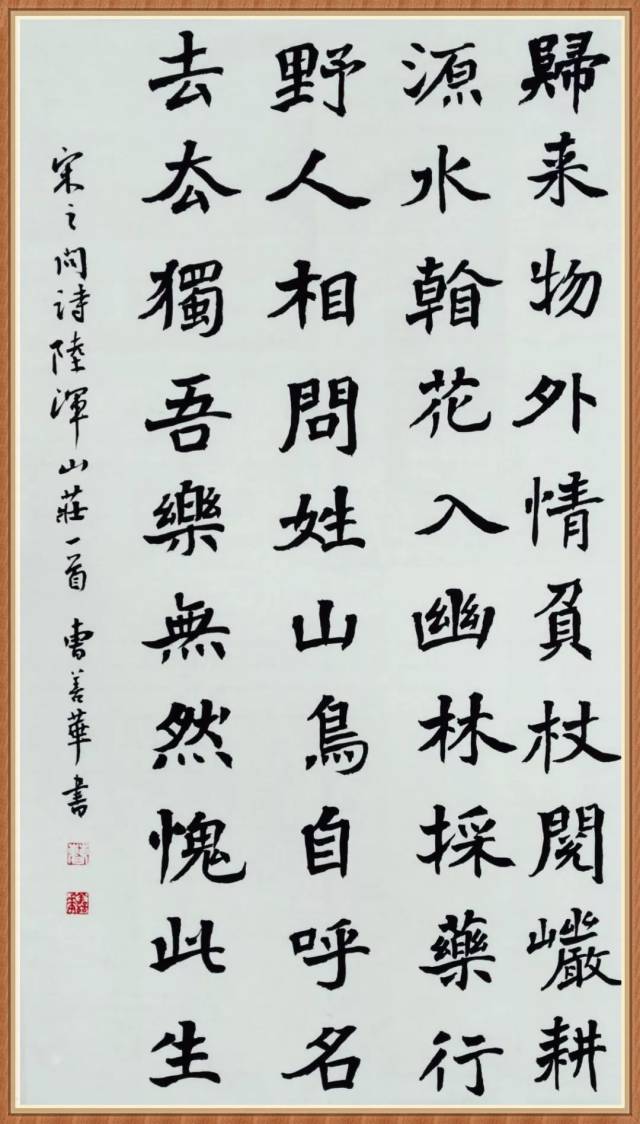 歸来物外情負杖閱巖耕
源水看花入幽林採藥行
野人相問姓山鳥自呼名
去去獨吾樂無然愧此生
宋之問詩陸渾山莊一首 曹善華書